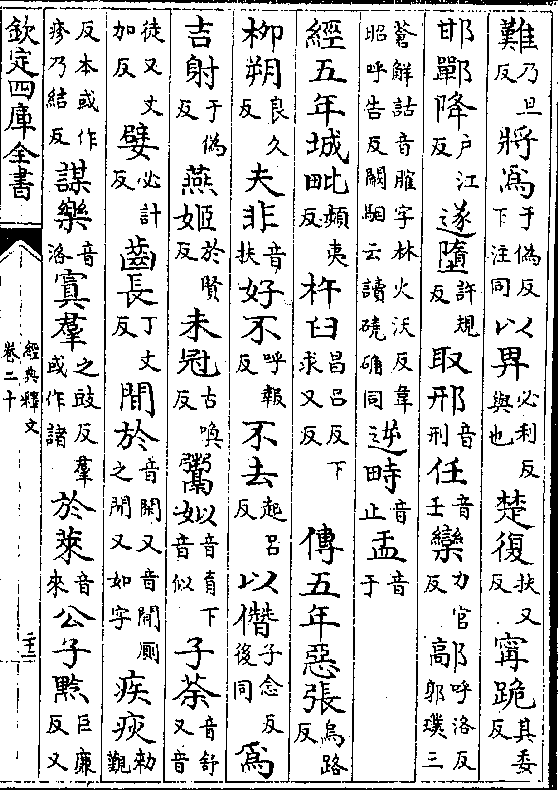 難乃旦反將爲于偽反下注同以畀必利反與也楚復扶又反甯跪其委反
邯鄲降户江反遂墮許規反取邢音刑任音壬欒力官反鄗呼洛反郭璞三
蒼解詁音臛字林火沃反韋昭呼告反闞駰云讀磽确同逆畤音止盂音于
經五年城毗頻夷反杵臼昌吕反下求又反傳五年惡張烏路反
柳朔良久反夫非音扶好不呼報反不去起吕反以僭子念反後同爲
吉射于偽反燕姬於賢反未冠古喚反鬻姒音育下音似子荼音舒又音
徒又丈加反嬖必計反齒長丁丈反閒於音閑又音閒厠之閒又如字疾疢勑覲
反本或作疹乃結反謀樂音洛寘羣之豉反羣或作諸於萊音來公子黔巨廉反又
欽定四庫全書
經典釋文
卷二十
二十二